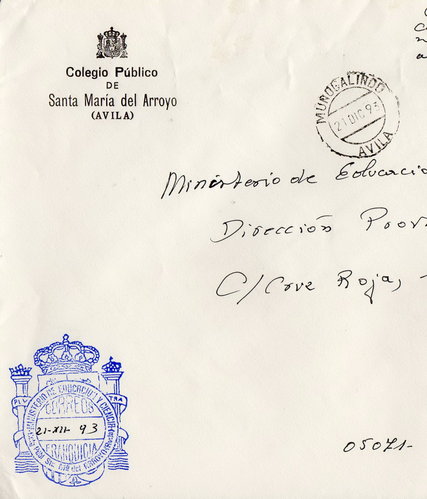 Colegio Público
DE
Santa María del Arroyo
(AVILA)
MUÑOGALINDO
21 DIC 93
AVILA
Ministerio de Educació
Dirección Prov
C/ Cruz Roja,
05071-
MINISTERIO DE EDUCACION Y CIENCIA
CORREOS
21-XII-93
FRANQUICIA